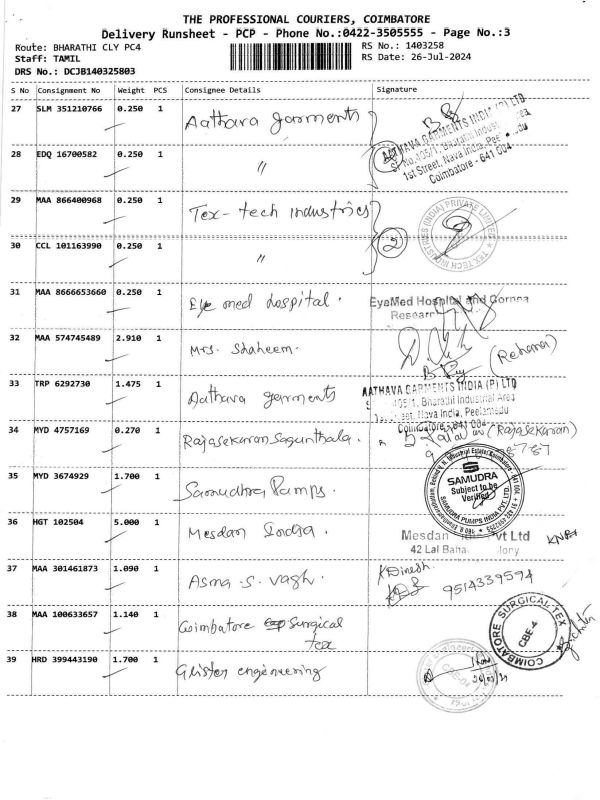 THE PROFESSIONAL COURIERS, COIMBATORE
Delivery Runsheet - PCP - Phone No.:0422-3505555 - Page No.:3
Route: BHARATHI CLY PC4 RS No.: 1403258
Staff: TAMIL RS Date: 26-Jul-2024
DRS No.: DCJB140325803
S No Consignment No Weight PCS Consignee Details Signature
27 SLM 351210766 0.250 1 Aathava garments
AATHAVA GARMENTS INDIA (P) LTD
S. No.405/1, Bharathi Industrial Area
1st Street, Nava India, Peelamedu
Coimbatore - 641 004
28 EDQ 16700582 0.250 1 〃 2
29 MAA 866400968 0.250 1 Tex-tech industries
TEX TECH INDUSTRIES (INDIA) PRIVATE LIMITED
30 CCL 101163990 0.250 1 〃 2
31 MAA 8666653660 0.250 1 Eye med hospital. EyeMed Hospital and Cornea
Research
32 MAA 574745489 2.910 1 Mrs. Shaheem. (Rehana)
33 TRP 6292730 1.475 1 Aathava garments
AATHAVA GARMENTS INDIA (P) LTD
405/1, Bharathi Industrial Area
1st Street, Nava India, Peelamedu
Coimbatore - 641 004
34 MYD 4757169 0.270 1 Rajasekaran Sagunthala. (Rajasekaran)
35 MYD 3674929 1.700 1 Samudhra Pumps.
SAMUDRA
Subject to be
Verified
SAMUDRA PUMPS INDIA PVT. LTD.
36 HGT 102504 5.000 1 Mesdan India. Mesdan vt Ltd
42 Lal Baha ony
37 MAA 301461873 1.090 1 Asma .S. vagh. K Dinesh.
9514339594
38 MAA 100633657 1.140 1 Coimbatore Surgical
tex
COIMBATORE SURGICAL TEX
CBE-4
39 HRD 399443190 1.700 1 Glister engineering